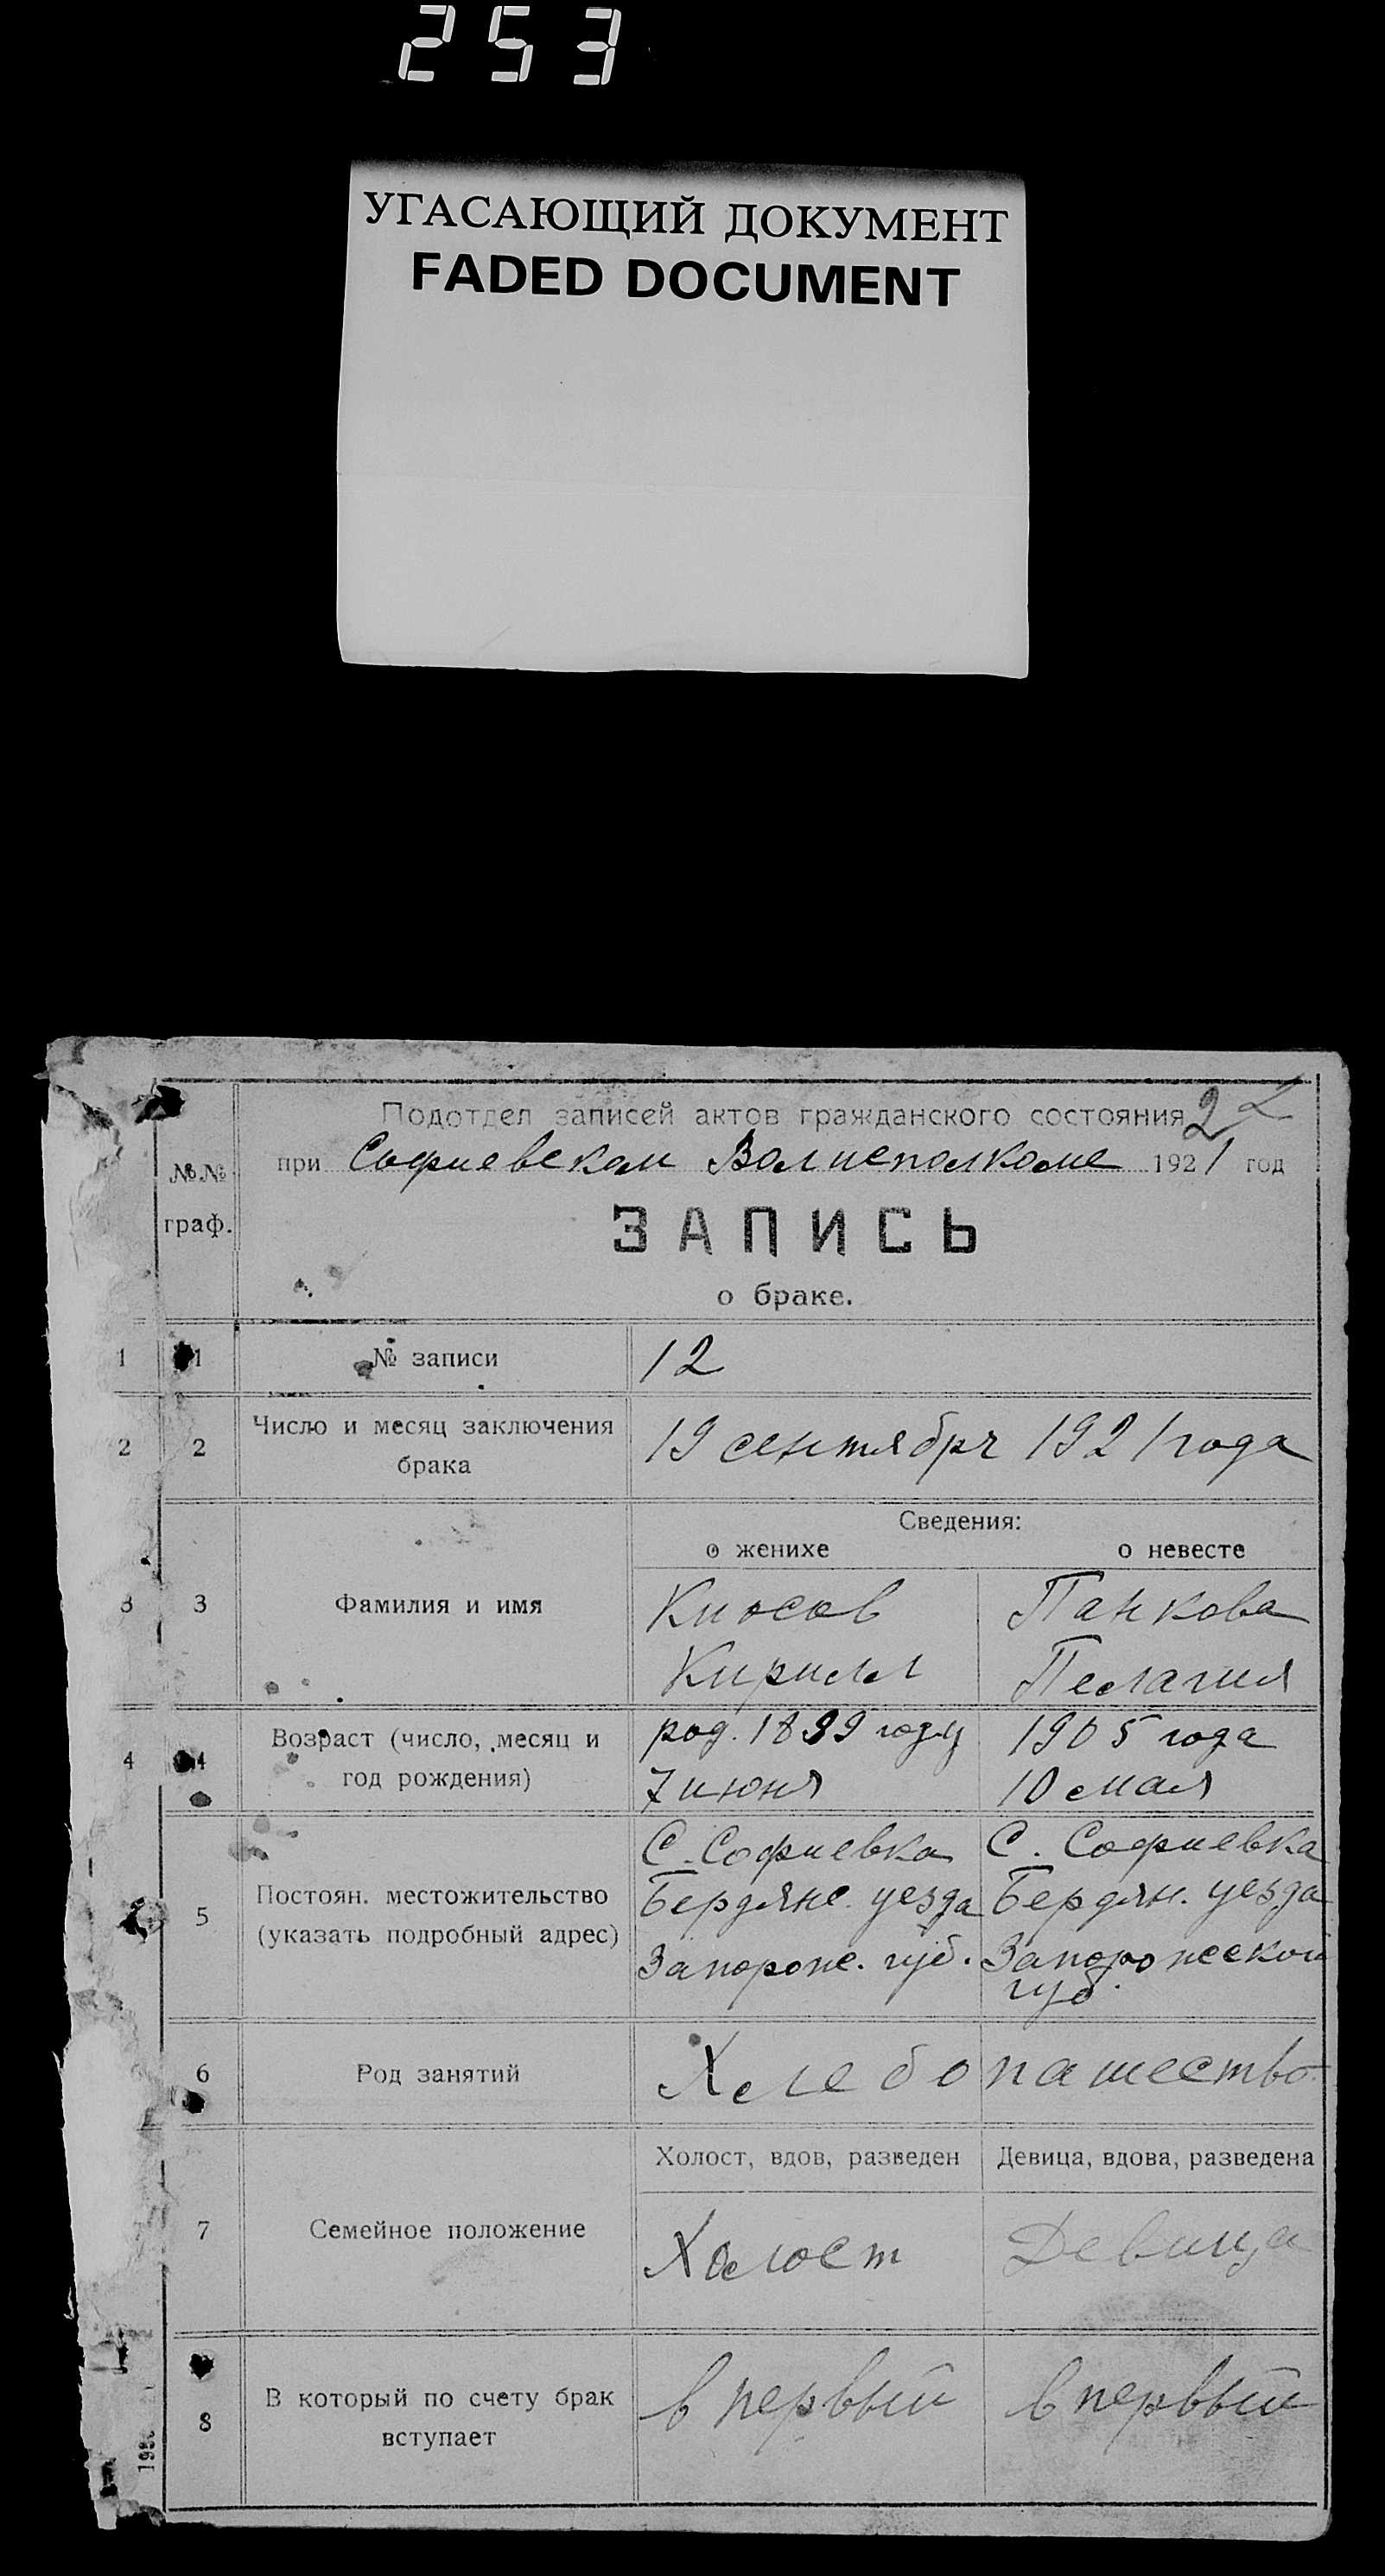 253
УГАСАЮЩИЙ ДОКУМЕНТ
FADED DOCUMENT
Подотдел записей актов гражданского состояния
при Софиевском Волисполкоме 1921 год
№№ граф.
ЗАПИСЬ
о браке.
1 1 № записи 12
2 2 Число и месяц заключения брака 19 сентября 1921 года
Сведения:
о женихе о невесте
3 3 Фамилия и имя Панкова
Кирилл Пелагия
4 4 Возраст (число, месяц и год рождения) род. 1899 году 1905 года
7 июня 10 мая
С. Софиевка С. Софиевка
5 Постоян. местожительство Бердянс. уезда Бердян. уезда
(указать подробный адрес) Запорож. губ. Запорожской
губ.
6 Род занятий Хлебопашество
Холост, вдов, разведен Девица, вдова, разведена
7 Семейное положение Холост Девица
8 В который по счету брак вступает в первый в первый